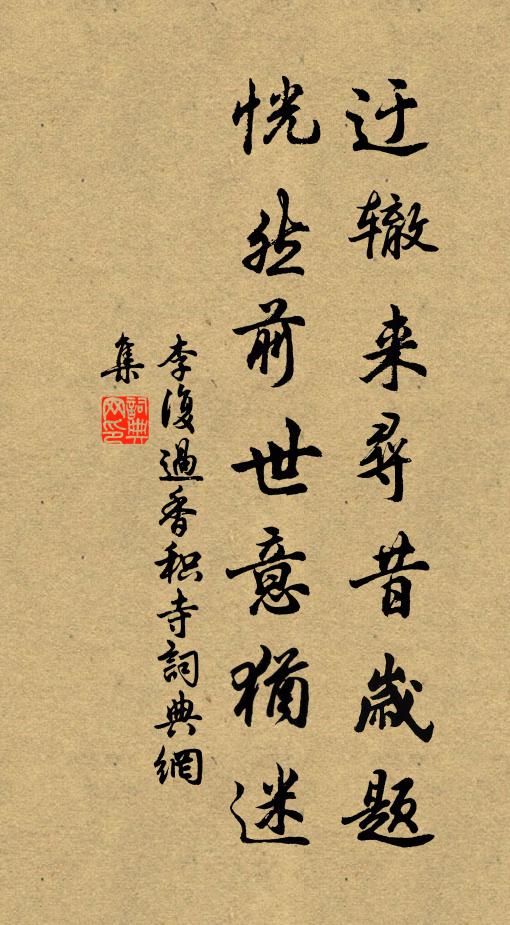 迂辙来尋昔歲题
恍然前世意猶迷
李復過香积寺詞典網
集
詞典网印